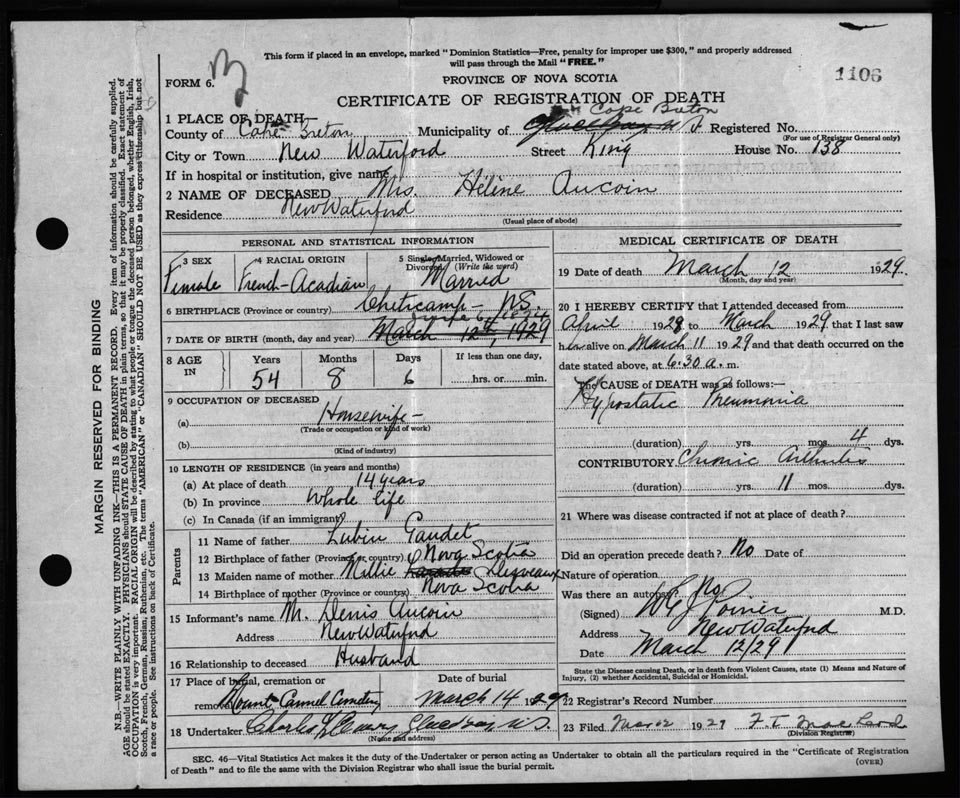 This form if placed in an envelope, marked "Dominion Statistics—Free, penalty for improper use $300," and properly addressed
will pass through the Mail "FREE."
FORM 6.
PROVINCE OF NOVA SCOTIA
1106
CERTIFICATE OF REGISTRATION OF DEATH
1 PLACE OF DEATH
Cape Breton
County of Cape Breton Municipality of Registered No.
(For use of Registrar General only)
City or Town New Waterford Street King House No. 138
If in hospital or institution, give name
2 NAME OF DECEASED Mrs. Héline Aucoin
Residence New Waterford
(Usual place of abode)
PERSONAL AND STATISTICAL INFORMATION
3 SEX Female
4 RACIAL ORIGIN French-Acadian
5 Single, Married, Widowed or Divorced (Write the word) Married
6 BIRTHPLACE (Province or country) Cheticamp - N.S.
7 DATE OF BIRTH (month, day and year) March 12th, 1929
8 AGE IN Years 54 Months 8 Days 6 If less than one day, hrs. or min.
9 OCCUPATION OF DECEASED
(a) Housewife -
(Trade or occupation or kind of work)
(b)
(Kind of industry)
10 LENGTH OF RESIDENCE (in years and months)
(a) At place of death 14 years
(b) In province Whole life
(c) In Canada (if an immigrant)
Parents
11 Name of father Lubin Gaudet
12 Birthplace of father (Province or country) Nova Scotia
13 Maiden name of mother Millie Desveaux
14 Birthplace of mother (Province or country) Nova Scotia
15 Informant's name Mr. Denis Aucoin
Address New Waterford
16 Relationship to deceased Husband
17 Place of burial, cremation or removal Mount Carmel Cemetery
Date of burial March 14 1929
18 Undertaker Charles
(Name and address)
MEDICAL CERTIFICATE OF DEATH
19 Date of death March 12 1929.
(Month, day and year)
20 I HEREBY CERTIFY that I attended deceased from
April 1928 to March 1929 that I last saw
her alive on March 11 1929 and that death occurred on the
date stated above, at 6.30 a. m.
The CAUSE OF DEATH was as follows:—
Hypostatic Pneumonia
(duration) yrs. mos. 4 dys.
CONTRIBUTORY Chronic Arthritis
(duration) 11 yrs. mos. dys.
21 Where was disease contracted if not at place of death?
Did an operation precede death? No Date of
Nature of operation
Was there an autopsy No
(Signed) Poirier M.D.
Address New Waterford
Date March 12/29
State the Disease causing Death, or in death from Violent Causes, state (1) Means and Nature of
Injury, (2) whether Accidental, Suicidal or Homicidal.
22 Registrar's Record Number
23 Filed Mar 12 1929 F. T. MacLeod
(Division Registrar)
SEC. 46—Vital Statistics Act makes it the duty of the Undertaker or person acting as Undertaker to obtain all the particulars required in the "Certificate of Registration
of Death" and to file the same with the Division Registrar who shall issue the burial permit.
(OVER)
MARGIN RESERVED FOR BINDING
N.B.—WRITE PLAINLY WITH UNFADING INK—THIS IS A PERMANENT RECORD. Every item of information should be carefully supplied.
AGE should be stated EXACTLY. PHYSICIANS should STATE CAUSE OF DEATH in plain terms, so that it may be properly classified. Exact statement of
OCCUPATION is very important. RACIAL ORIGIN will be described by stating to what people or tongue the deceased person belonged, whether English, Irish,
Scotch, French, German, Russian, Ruthenian, etc. The terms "AMERICAN" or "CANADIAN" SHOULD NOT BE USED as they express citizenship but not
a race or people. See instructions on back of Certificate.